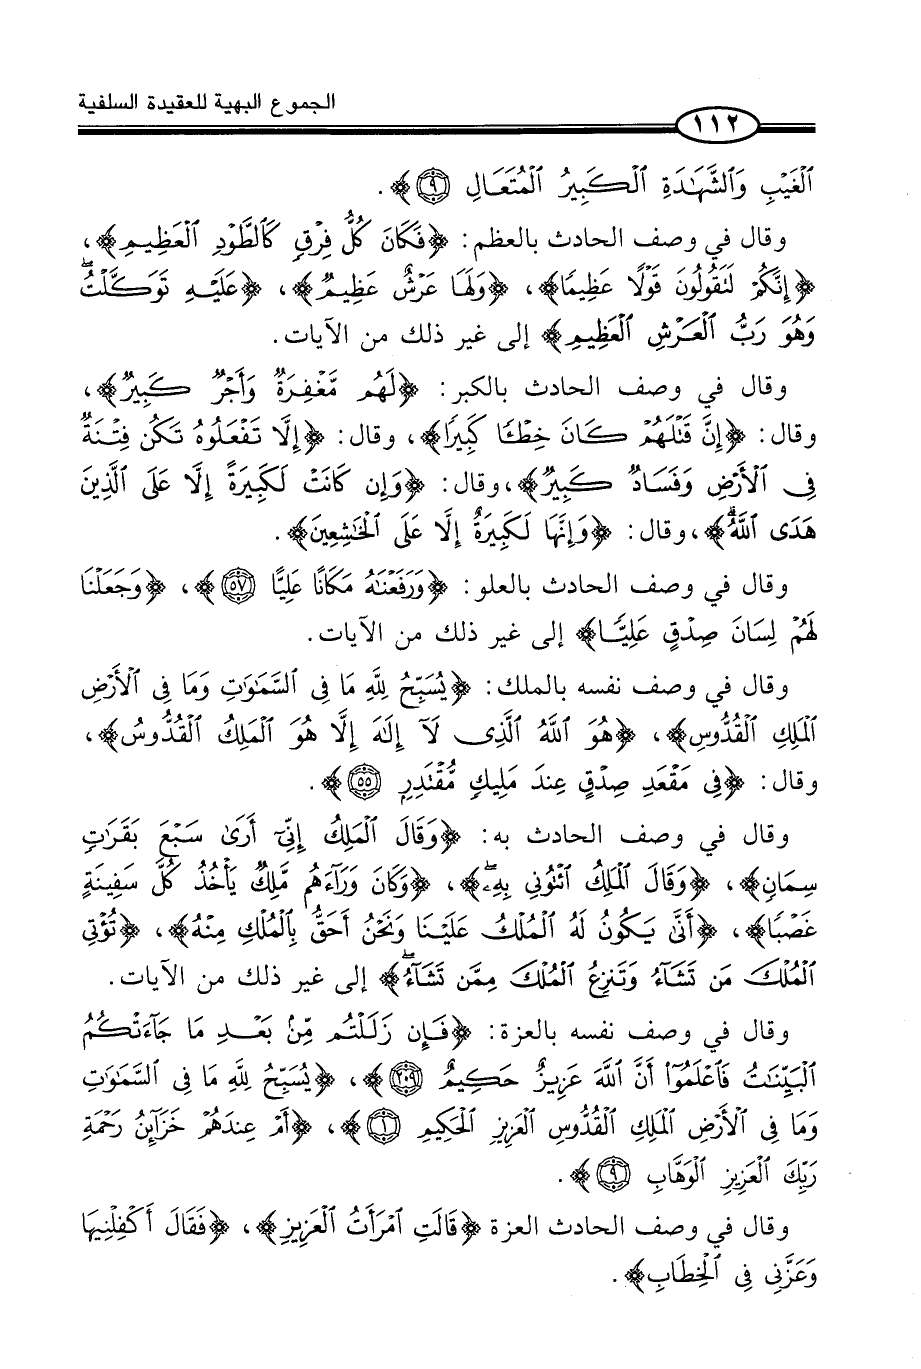 الجموع البهية للعقيدة السلفية
١١٢
ٱلْغَيْبِ وَٱلشَّهَٰدَةِ ٱلْكَبِيرُ ٱلْمُتَعَالِ ٩﴾.
وقال في وصف الحادث بالعظم: ﴿فَكَانَ كُلُّ فِرْقٍ كَٱلطَّوْدِ ٱلْعَظِيمِ﴾،
﴿إِنَّكُمْ لَتَقُولُونَ قَوْلًا عَظِيمًا﴾، ﴿وَلَهَا عَرْشٌ عَظِيمٌ﴾، ﴿عَلَيْهِ تَوَكَّلْتُ ۖ
وَهُوَ رَبُّ ٱلْعَرْشِ ٱلْعَظِيمِ﴾ إلى غير ذلك من الآيات.
وقال في وصف الحادث بالكبر: ﴿لَهُم مَّغْفِرَةٌ وَأَجْرٌ كَبِيرٌ﴾،
وقال: ﴿إِنَّ قَتْلَهُمْ كَانَ خِطْـًٔا كَبِيرًا﴾، وقال: ﴿إِلَّا تَفْعَلُوهُ تَكُن فِتْنَةٌ
فِى ٱلْأَرْضِ وَفَسَادٌ كَبِيرٌ﴾، وقال: ﴿وَإِن كَانَتْ لَكَبِيرَةً إِلَّا عَلَى ٱلَّذِينَ
هَدَى ٱللَّهُ ۗ﴾، وقال: ﴿وَإِنَّهَا لَكَبِيرَةٌ إِلَّا عَلَى ٱلْخَٰشِعِينَ﴾.
وقال في وصف الحادث بالعلو: ﴿وَرَفَعْنَٰهُ مَكَانًا عَلِيًّا ٥٧﴾، ﴿وَجَعَلْنَا
لَهُمْ لِسَانَ صِدْقٍ عَلِيًّا﴾ إلى غير ذلك من الآيات.
وقال في وصف نفسه بالملك: ﴿يُسَبِّحُ لِلَّهِ مَا فِى ٱلسَّمَٰوَٰتِ وَمَا فِى ٱلْأَرْضِ
ٱلْمَلِكِ ٱلْقُدُّوسِ﴾، ﴿هُوَ ٱللَّهُ ٱلَّذِى لَآ إِلَٰهَ إِلَّا هُوَ ٱلْمَلِكُ ٱلْقُدُّوسُ﴾،
وقال: ﴿فِى مَقْعَدِ صِدْقٍ عِندَ مَلِيكٍ مُّقْتَدِرٍ ٥٥﴾.
وقال في وصف الحادث به: ﴿وَقَالَ ٱلْمَلِكُ إِنِّىٓ أَرَىٰ سَبْعَ بَقَرَٰتٍ
سِمَانٍ﴾، ﴿وَقَالَ ٱلْمَلِكُ ٱئْتُونِى بِهِۦ ۖ﴾، ﴿وَكَانَ وَرَآءَهُم مَّلِكٌ يَأْخُذُ كُلَّ سَفِينَةٍ
غَصْبًا﴾، ﴿أَنَّىٰ يَكُونُ لَهُ ٱلْمُلْكُ عَلَيْنَا وَنَحْنُ أَحَقُّ بِٱلْمُلْكِ مِنْهُ﴾، ﴿تُؤْتِى
ٱلْمُلْكَ مَن تَشَآءُ وَتَنزِعُ ٱلْمُلْكَ مِمَّن تَشَآءُ ۖ﴾ إلى غير ذلك من الآيات.
وقال في وصف نفسه بالعزة: ﴿فَإِن زَلَلْتُم مِّنۢ بَعْدِ مَا جَآءَتْكُمُ
ٱلْبَيِّنَٰتُ فَٱعْلَمُوٓا۟ أَنَّ ٱللَّهَ عَزِيزٌ حَكِيمٌ ٢٠٩﴾، ﴿يُسَبِّحُ لِلَّهِ مَا فِى ٱلسَّمَٰوَٰتِ
وَمَا فِى ٱلْأَرْضِ ٱلْمَلِكِ ٱلْقُدُّوسِ ٱلْعَزِيزِ ٱلْحَكِيمِ ١﴾، ﴿أَمْ عِندَهُمْ خَزَآئِنُ رَحْمَةِ
رَبِّكَ ٱلْعَزِيزِ ٱلْوَهَّابِ ٩﴾.
وقال في وصف الحادث العزة ﴿قَالَتِ ٱمْرَأَتُ ٱلْعَزِيزِ﴾، ﴿فَقَالَ أَكْفِلْنِيهَا
وَعَزَّنِى فِى ٱلْخِطَابِ﴾.